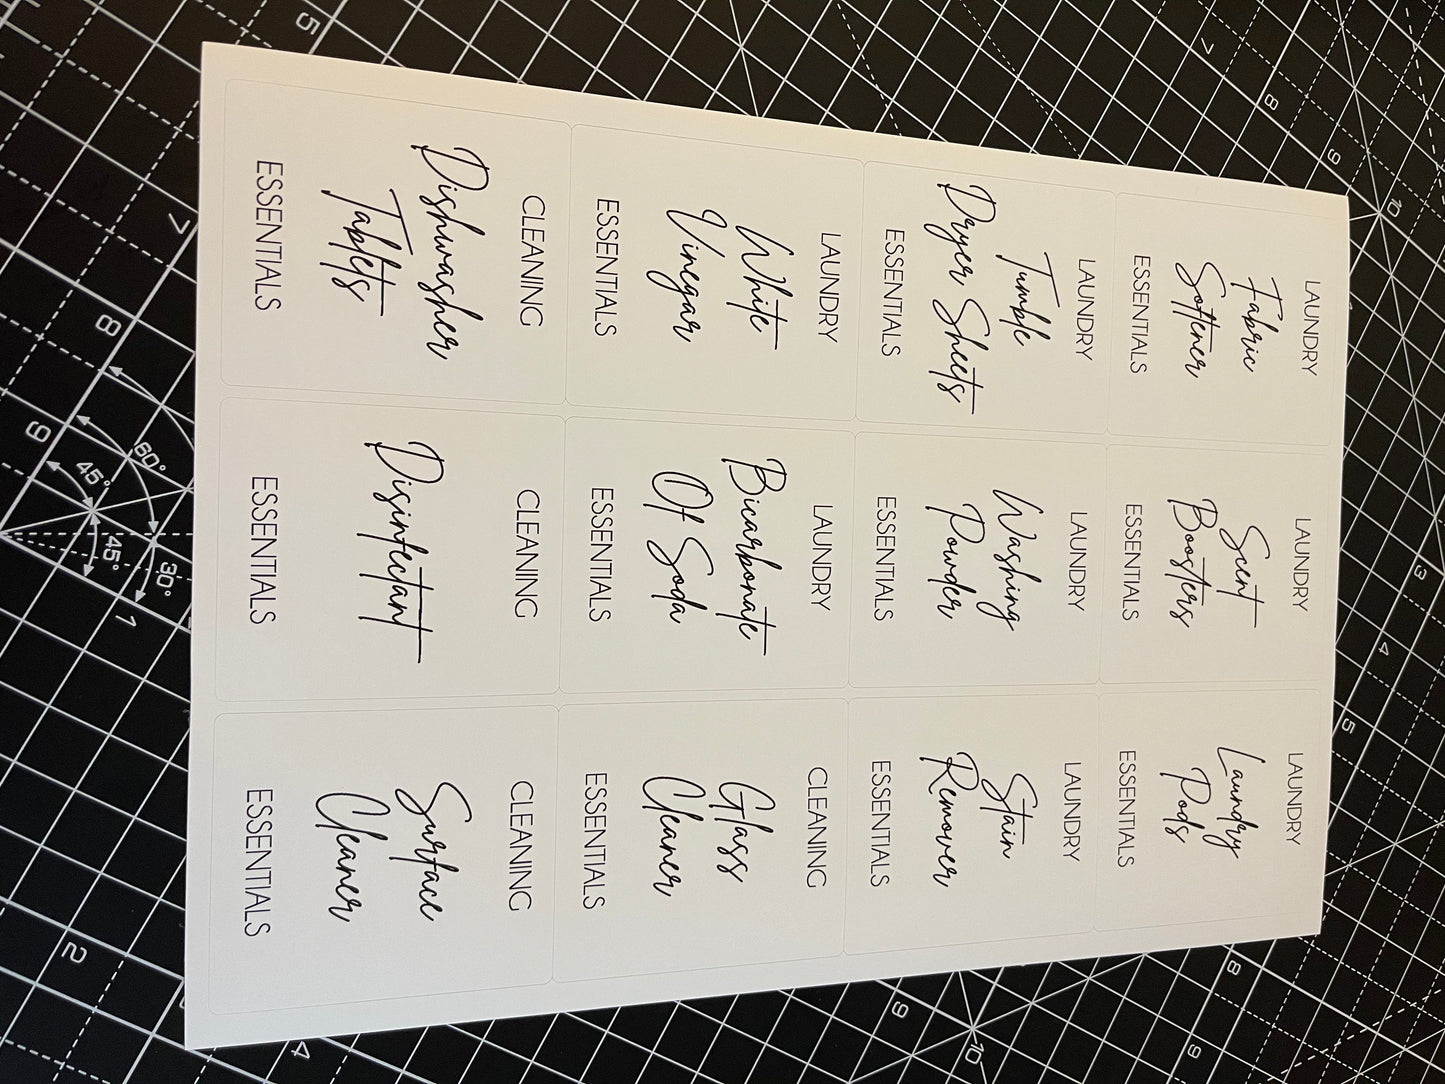 LAUNDRY
Fabric
Softener
ESSENTIALS
LAUNDRY
Scent
Boosters
ESSENTIALS
LAUNDRY
Laundry
Pods
ESSENTIALS
LAUNDRY
Tumble
Dryer Sheets
ESSENTIALS
LAUNDRY
Washing
Powder
ESSENTIALS
LAUNDRY
Stain
Remover
ESSENTIALS
LAUNDRY
White
Vinegar
ESSENTIALS
LAUNDRY
Bicarbonate
Of Soda
ESSENTIALS
CLEANING
Glass
Cleaner
ESSENTIALS
CLEANING
Dishwasher
Tablets
ESSENTIALS
CLEANING
Disinfectant
ESSENTIALS
CLEANING
Surface
Cleaner
ESSENTIALS
60°
45°
45°
30°